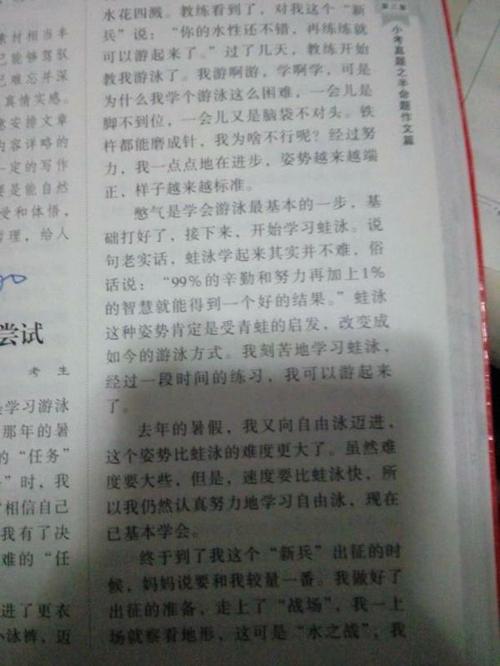 素材相当丰
己能够驾驭
己难忘并深
真情实感。
意安排文章
内容详略的
一定的写作
要是能自然
受和体悟，
哲理，给人
尝试
考 生
学习游泳
那年的暑
的“任务”
”时，我
“相信自己
我有了决
难的“任
进了更衣
小泳裤，迈
水花四溅。教练看到了，对我这个“新
兵”说：“你的水性还不错，再练练就
可以游起来了。”过了几天，教练开始
教我游泳了。我游啊游，学啊学，可是
为什么我学个游泳这么困难，一会儿是
脚不到位，一会儿又是脑袋不对头。铁
杵都能磨成针，我为啥不行呢？经过努
力，我一点点地在进步，姿势越来越端
正，样子越来越标准。
憋气是学会游泳最基本的一步，基
础打好了，接下来，开始学习蛙泳。说
句老实话，蛙泳学起来其实并不难，俗
话说：“99%的辛勤和努力再加上1%
的智慧就能得到一个好的结果。”蛙泳
这种姿势肯定是受青蛙的启发，改变成
如今的游泳方式。我刻苦地学习蛙泳，
经过一段时间的练习，我可以游起来
了。
去年的暑假，我又向自由泳迈进，
这个姿势比蛙泳的难度更大了。虽然难
度要大些，但是，速度要比蛙泳快，所
以我仍然认真努力地学习自由泳，现在
已基本学会。
终于到了我这个“新兵”出征的时
候，妈妈说要和我较量一番。我做好了
出征的准备，走上了“战场”，我一上
场就察看地形，这可是“水之战”，我
小考真题之半命题作文篇